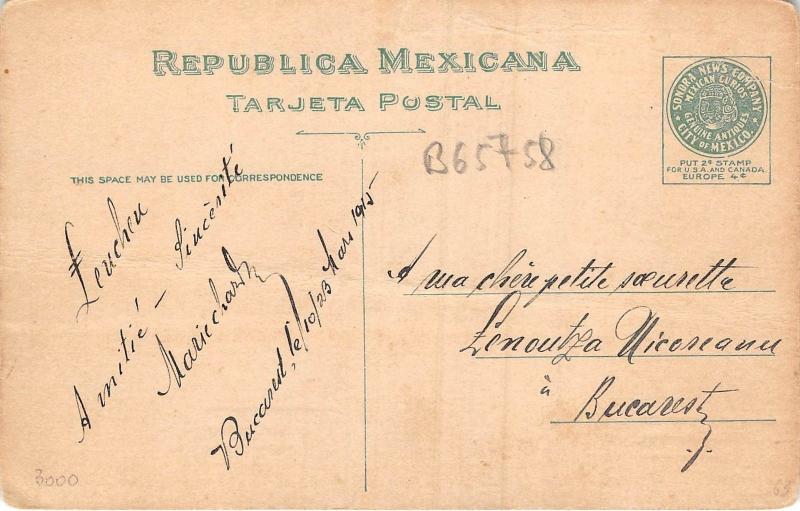 REPUBLICA MEXICANA
TARJETA POSTAL
SONORA NEWS COMPANY
MEXICAN CURIOS
GENUINE ANTIQUES
CITY OF MEXICO.
PUT 2¢ STAMP
FOR U.S.A. AND CANADA.
EUROPE 4¢
THIS SPACE MAY BE USED FOR CORRESPONDENCE
B65758
Amitié – Sincérité
Bucarest, le 10/23 Mars 1915
A ma chère petite sœurette
Lenoutza Nicoreanu
à
Bucarest
3000
63